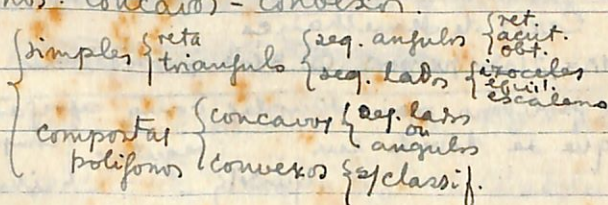 concavos - convexos.
simples { reta { seg. angulos { ret.
acut.
obt.
triangulo { seg. lados { izoceles
equil.
escaleno
compostas
poligonos { concavos { seg. lados
ou
angulos
convexos { s/classif.